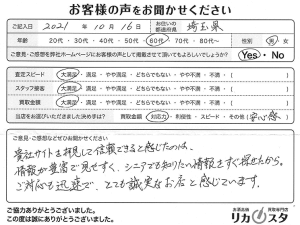 お客様の声をお聞かせください
ご記入日 2021年 10月 16日 お住いの都道府県 埼玉県
年齢 20代・30代・40代・50代・60代・70代・80代～ 性別 男・女
ご意見・ご感想を弊社ホームページにお客様の声として掲載させて頂いてもよろしいでしょうか? Yes・No
査定スピード 大満足・満足・やや満足・どちらでもない・やや不満・不満・( )
スタッフ接客 大満足・満足・やや満足・どちらでもない・やや不満・不満・( )
買取金額 大満足・満足・やや満足・どちらでもない・やや不満・不満・( )
当店をお選びいただきました決め手は? 買取金額・対応力・利便性・スピード・その他(安心感)
ご意見・ご感想などぜひお聞かせください
貴社サイトを拝見して信頼できると感じたのは、
情報が豊富で見やすく、シニアでも知りたい情報をすぐ探せたから。
ご対応も迅速で、とても誠実なお店と感じています。
ご協力ありがとうございました。
この度は誠にありがとうございました。
お酒高価買取専門店
リカスタ